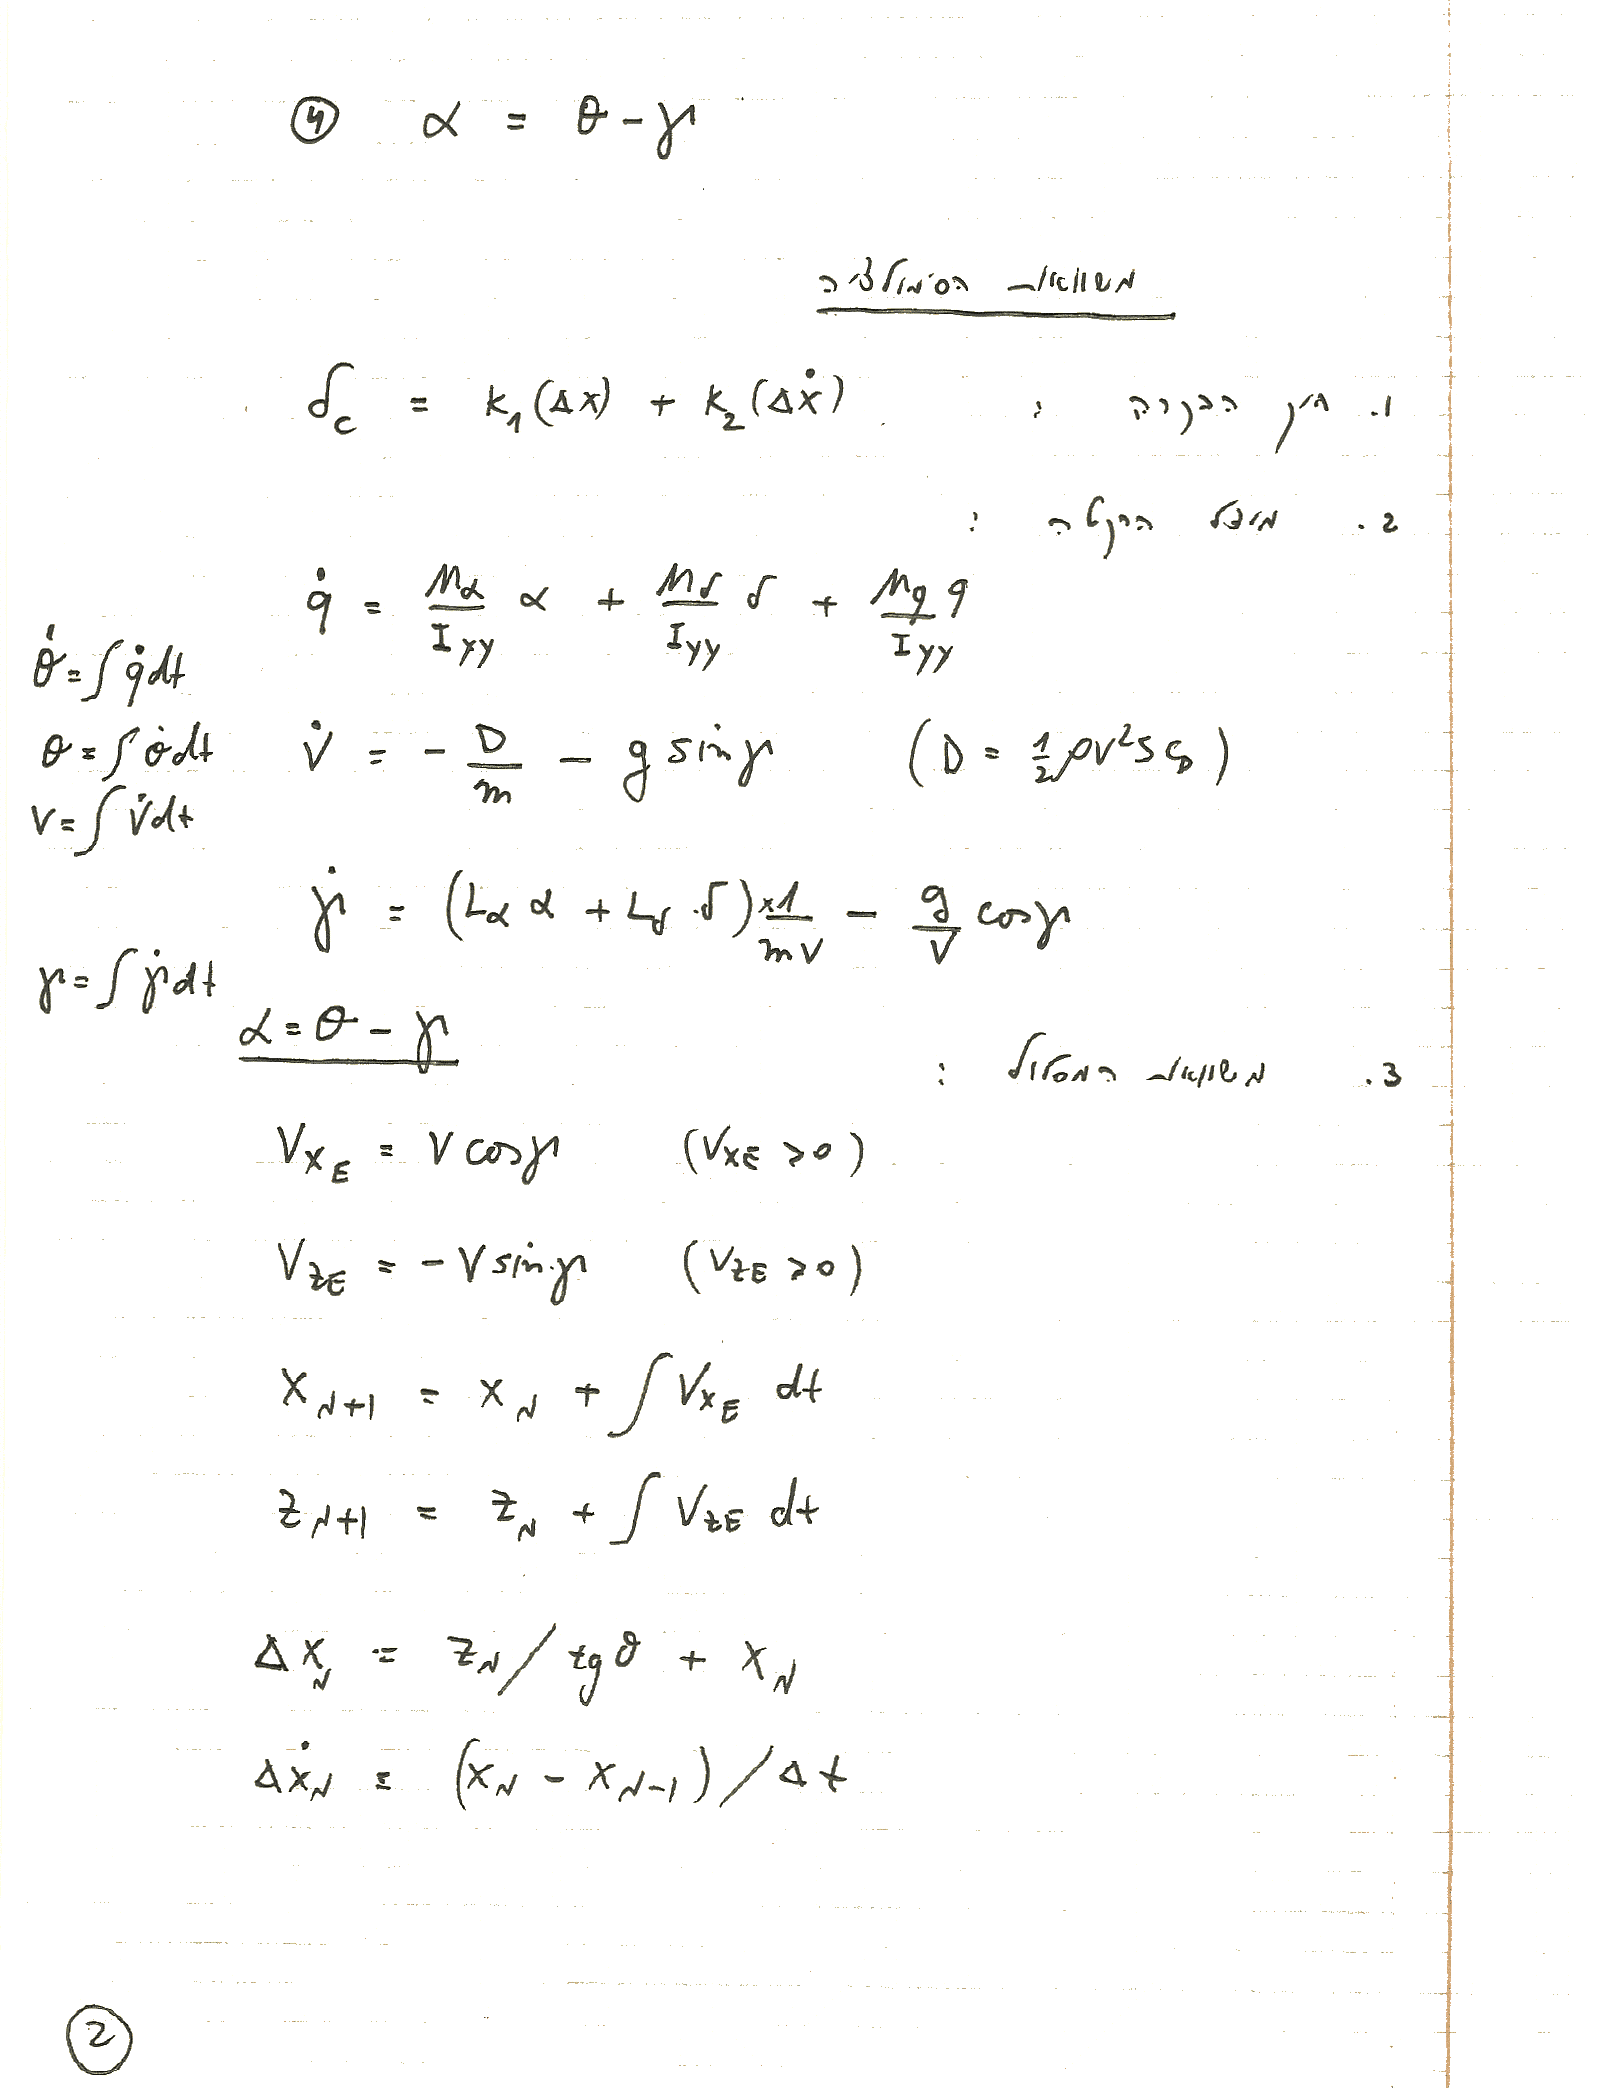 ④ α = θ - γ
משוואות הסימולציה
1. חוק הבקרה : δc = K₁(Δx) + K₂(Δẋ)
2. מודל הרקטה :
q̇ = Mα/Iyy α + Mδ/Iyy δ + Mq/Iyy q
θ̇ = ∫q̇dt
θ = ∫θ̇dt
V̇ = - D/m - g sinγ (D = ½ρV²SC_D)
V = ∫V̇dt
γ̇ = (Lα α + Lδ · δ) × 1/mV - g/V cosγ
γ = ∫γ̇dt
α = θ - γ
3. משוואות המסלול :
V_XE = V cosγ (V_XE > 0)
V_ZE = - V sinγ (V_ZE > 0)
X_N+1 = X_N + ∫V_XE dt
Z_N+1 = Z_N + ∫V_ZE dt
ΔX_N = Z_N / tgθ + X_N
Δẋ_N = (X_N - X_N-1) / Δt
②